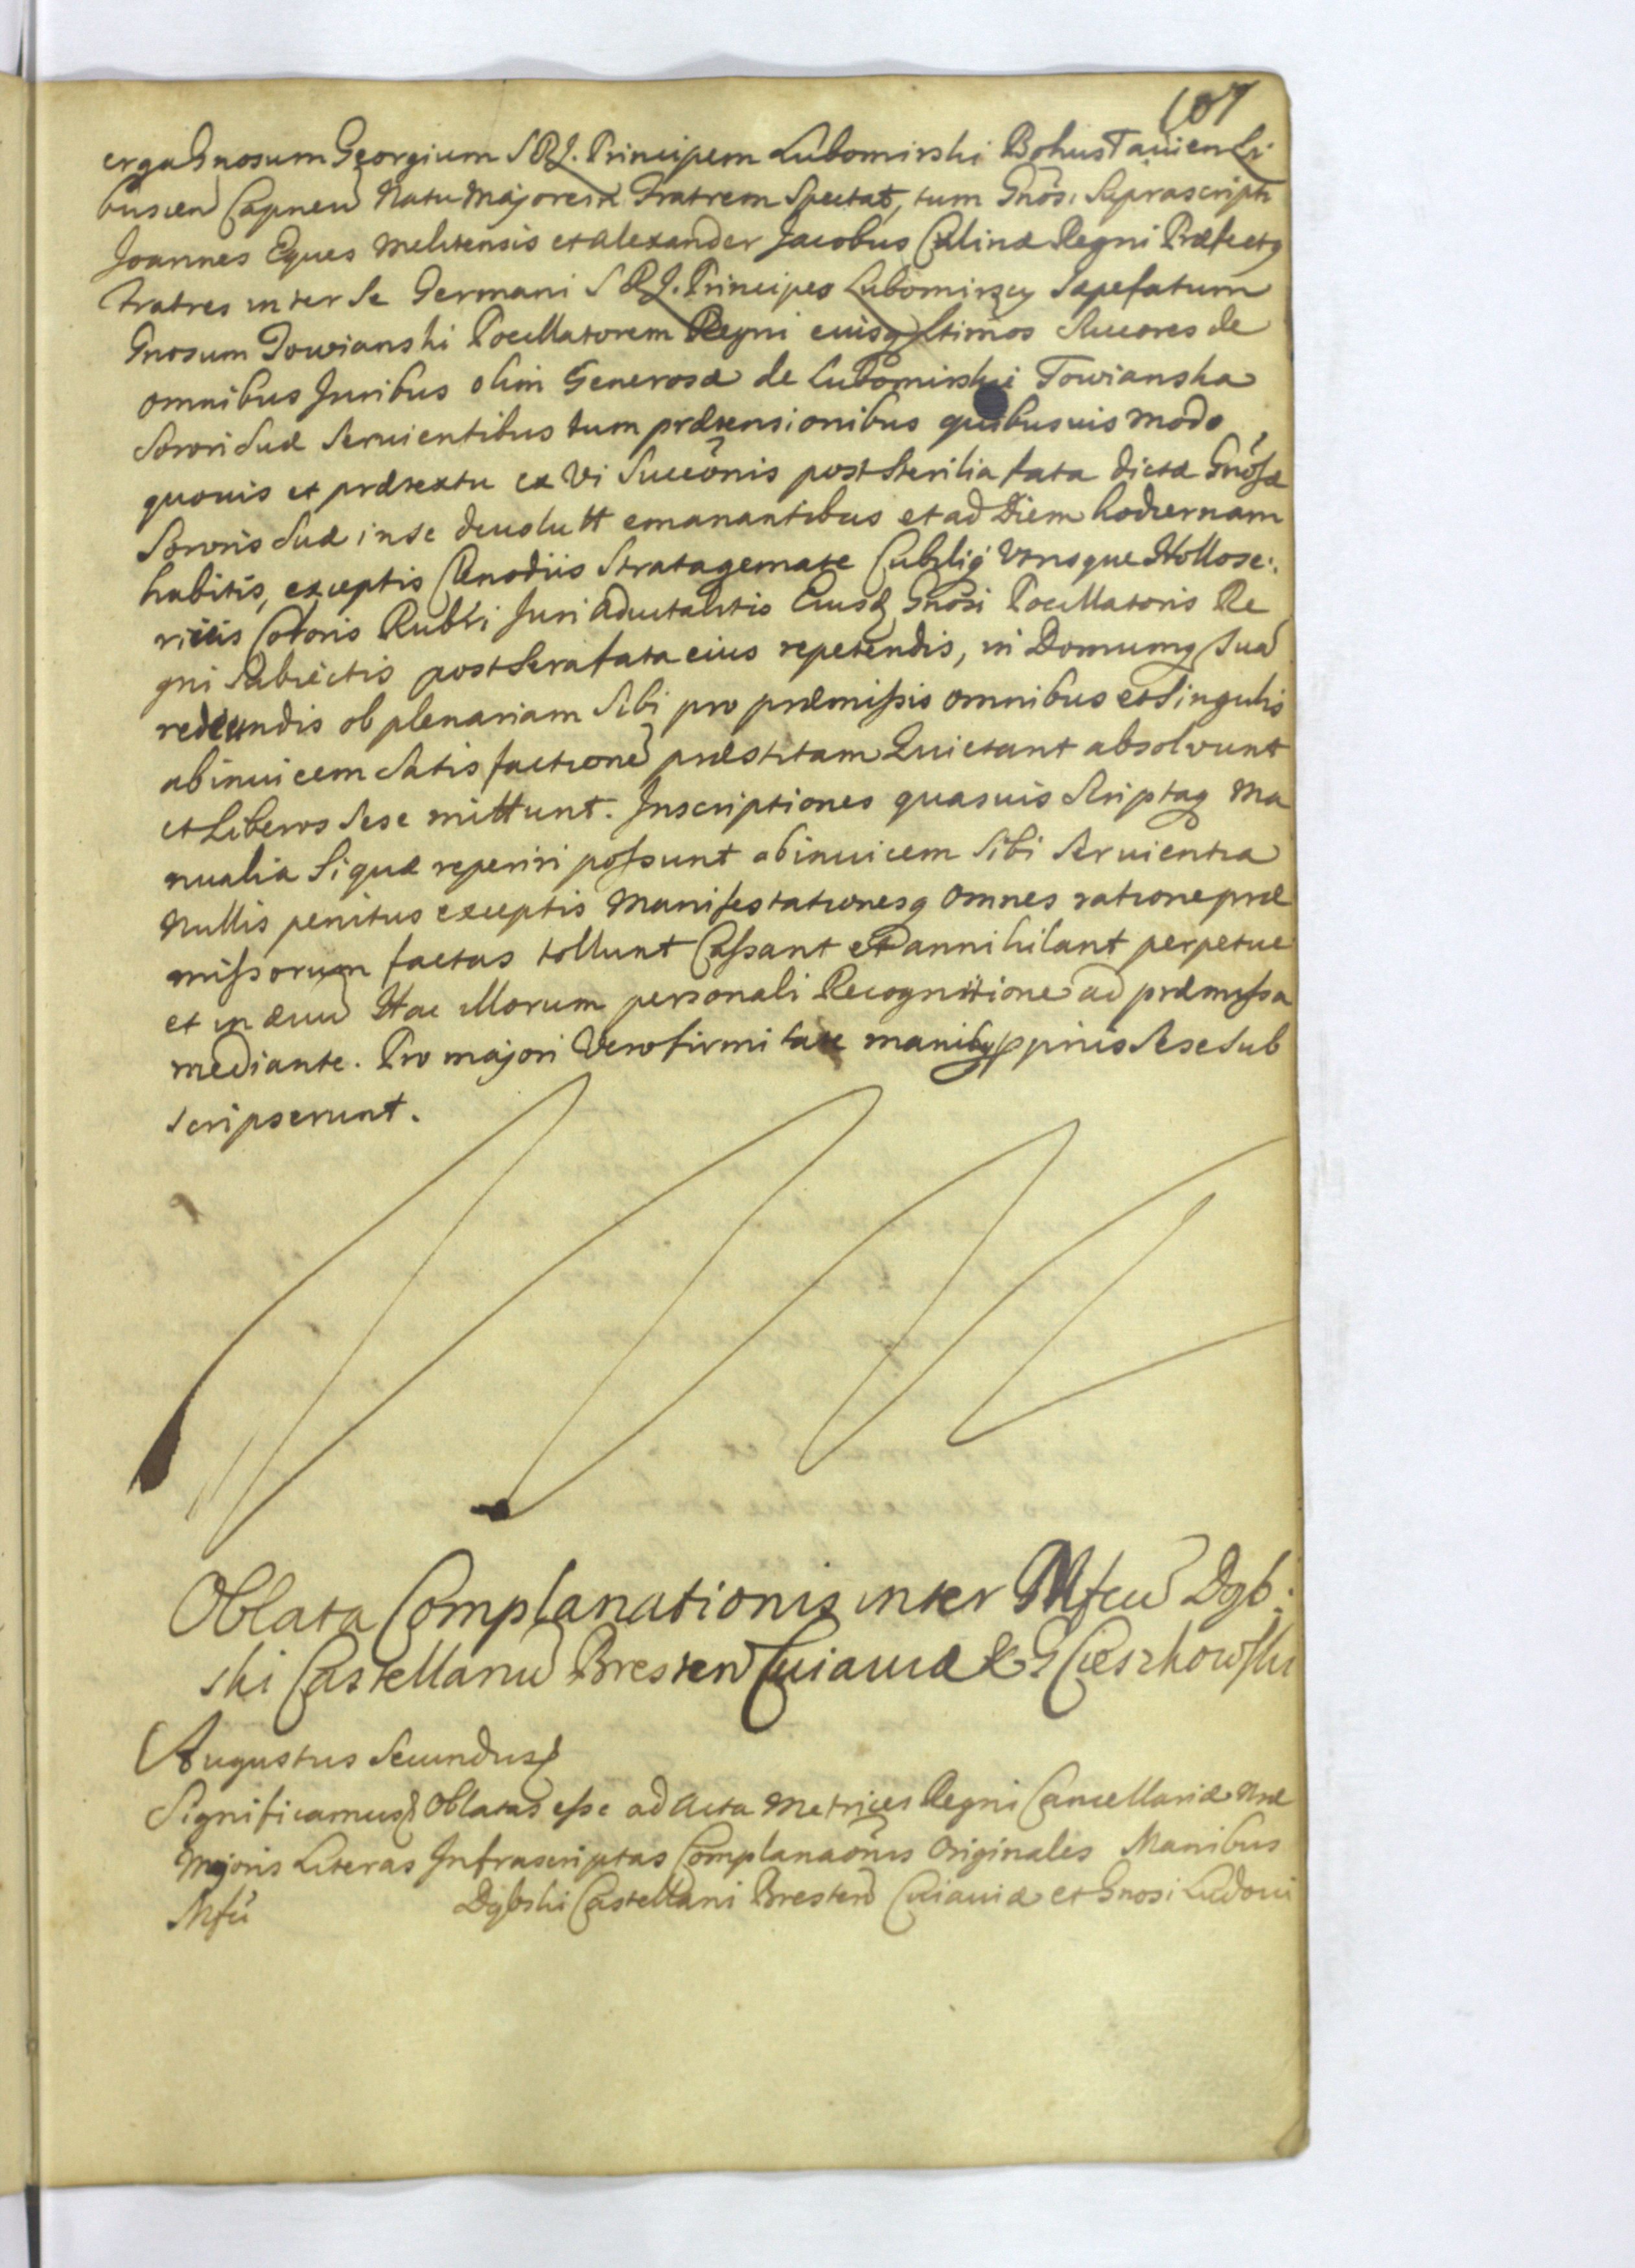 107
erga Gnosum Georgium S R J. Principem Lubomirski Bohustavien Li
buscen Capneu Natu Majorem Fratrem Spectat, tum Gnosi Suprascripti
Joannes Eques Melitensis et Alexander Jacobus Culinæ Regni Præfectq
Fratres inter se Germani S R J. Principes Lubomirscy Sæpefatum
Gnosum Towianski Pocillatorem Regni eiusq Ltimos Succores de
omnibus Juribus olim Generosæ de Lubomirskie Towianska
Sorori Suæ Seruientibus tum prætensionibus quibusuis modo
quouis et prætextu ex Vi Succōnis post Sterilia fata dictæ Gnosæ
Sororis Suæ in se deuolutt emanantibus et ad Diem hodiernam
habitis, exceptis Clenodiis Stratagemate Cubilig Vtroque Hollose:
riciis Coloris Rubri Juri Aduitalitis Eiusd Gnosi Pocillatoris Re
gni Subiectis post Sera fata eius repetendis, in Domumq Sua
redeundis ob plenariam Sibi pro præmissis omnibus et Singulis
abinuicem Satisfactione præstitam Quietant absolvunt
et Liberos Sese mittunt. Inscriptiones quasuis Scriptaq Ma
nualia Si quæ reperiri possunt abinuicem Sibi Seruientia
Nullis penitus exceptis Manifestationesq Omnes ratione præ
missorum factas tollunt Cassant et annihilant perpetue
et in æuu Hac Illorum personali Recognitione ad præmissa
mediante. Pro majori Vero firmitate manibq ppriis Sese Sub
scripserunt.
Oblata Complanationis inter Mfcu Dąb:
ski Castellanu Bresten Cuiauiæ & G Cieszkowski
Augustus Secundus
Significamus Oblatas esse ad Acta Metrices Regni Cancellariæ Nræ
Majoris Literas Infrascriptas Complanaōnis Originales Manibus
Mfci Dąbski Castellani Bresten Cuiauiæ et Gnosi Ludoui